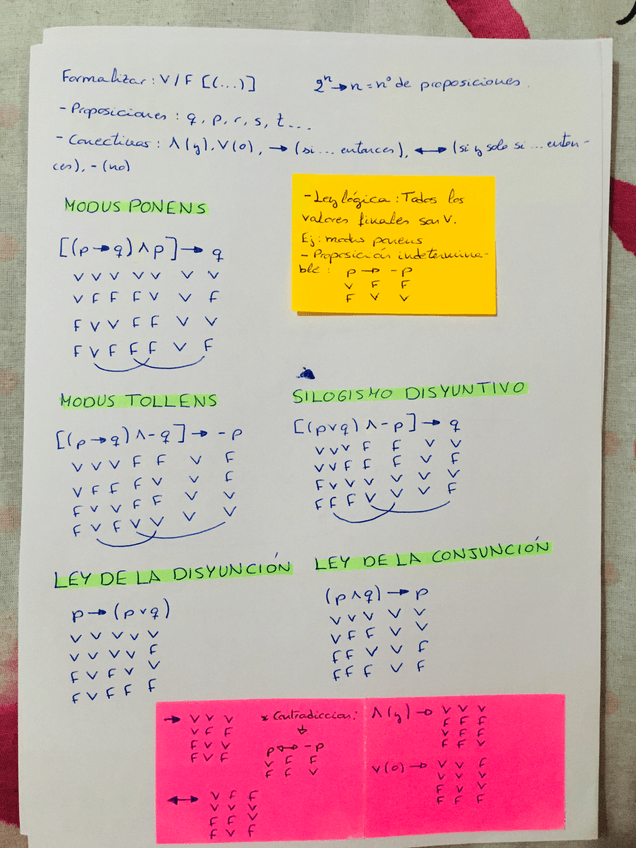 Formalizar: V/F [(...)] 2ⁿ→n = nº de proposiciones.
- Proposiciones: q, p, r, s, t...
- Conectivas: Λ(y), V(o), → (si... entonces), ↔ (si y solo si... enton-
ces), - (no)
MODUS PONENS
[(p→q) Λ p] → q
V V V V V V V
V F F F V V F
F V V F F V V
F V F F F V F
- Ley lógica: Todos los
valores finales son V.
Ej: modus ponens
- Proposición indetermina-
ble: p → -p
V F F
F V V
MODUS TOLLENS
[(p→q) Λ -q] → -p
V V V F F V F
V F F F V V F
F V V F F V V
F V F V V V V
SILOGISMO DISYUNTIVO
[(p v q) Λ -p] → q
V V V F F V V
V V F F F V F
F V V V V V V
F F F F V V F
LEY DE LA DISYUNCIÓN
p → (p v q)
V V V V V
V V V V F
F V F V V
F V F F F
LEY DE LA CONJUNCIÓN
(p Λ q) → p
V V V V V
V F F V V
F F V V F
F F F V F
→ V V V
V F F
F V V
F V F
↔ V F F
V V V
F F F
F V F
* Contradicción:
↓
p ↔ -p
V F F
F F V
Λ(y) → V V V
V F F
F F V
F F F
V(o) → V V F
V V V
F V V
F F F